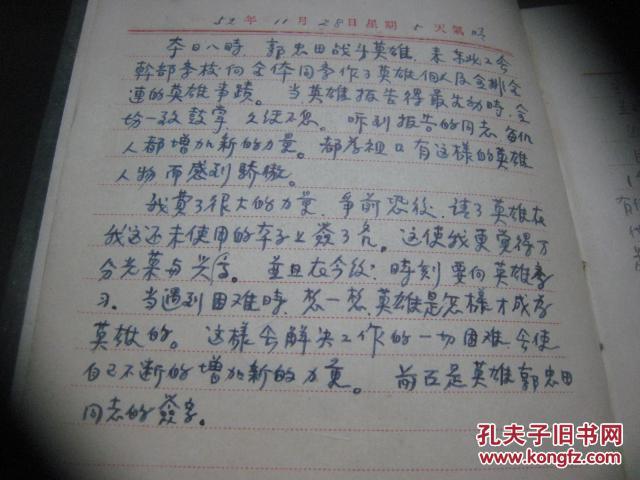 52年 11月 28日星期 5 天氣 晴
今日八時,郭忠田战斗英雄,来东北工会
幹部学校向全体同学作了英雄個人及全排全
連的英雄事蹟。当英雄报告得最生动时,全
场一致鼓掌久经不息。听到报告的同志每個
人都增加新的力量。都为祖国有这樣的英雄
人物而感到骄傲。
我費了很大的力量,争前恐後,請了英雄在
我这还未使用的本子上簽了名。这使我更覚得万
分光荣与兴
並且在今後:時刻要向英雄学
习。当遇到困难時,想一想,英雄是怎樣才成为
英雄的。这樣会解决工作的一切困难会使
自己不断的增加新的力量。前页是英雄郭忠田
同志的簽字。
孔夫子旧书网
www.kongfz.com